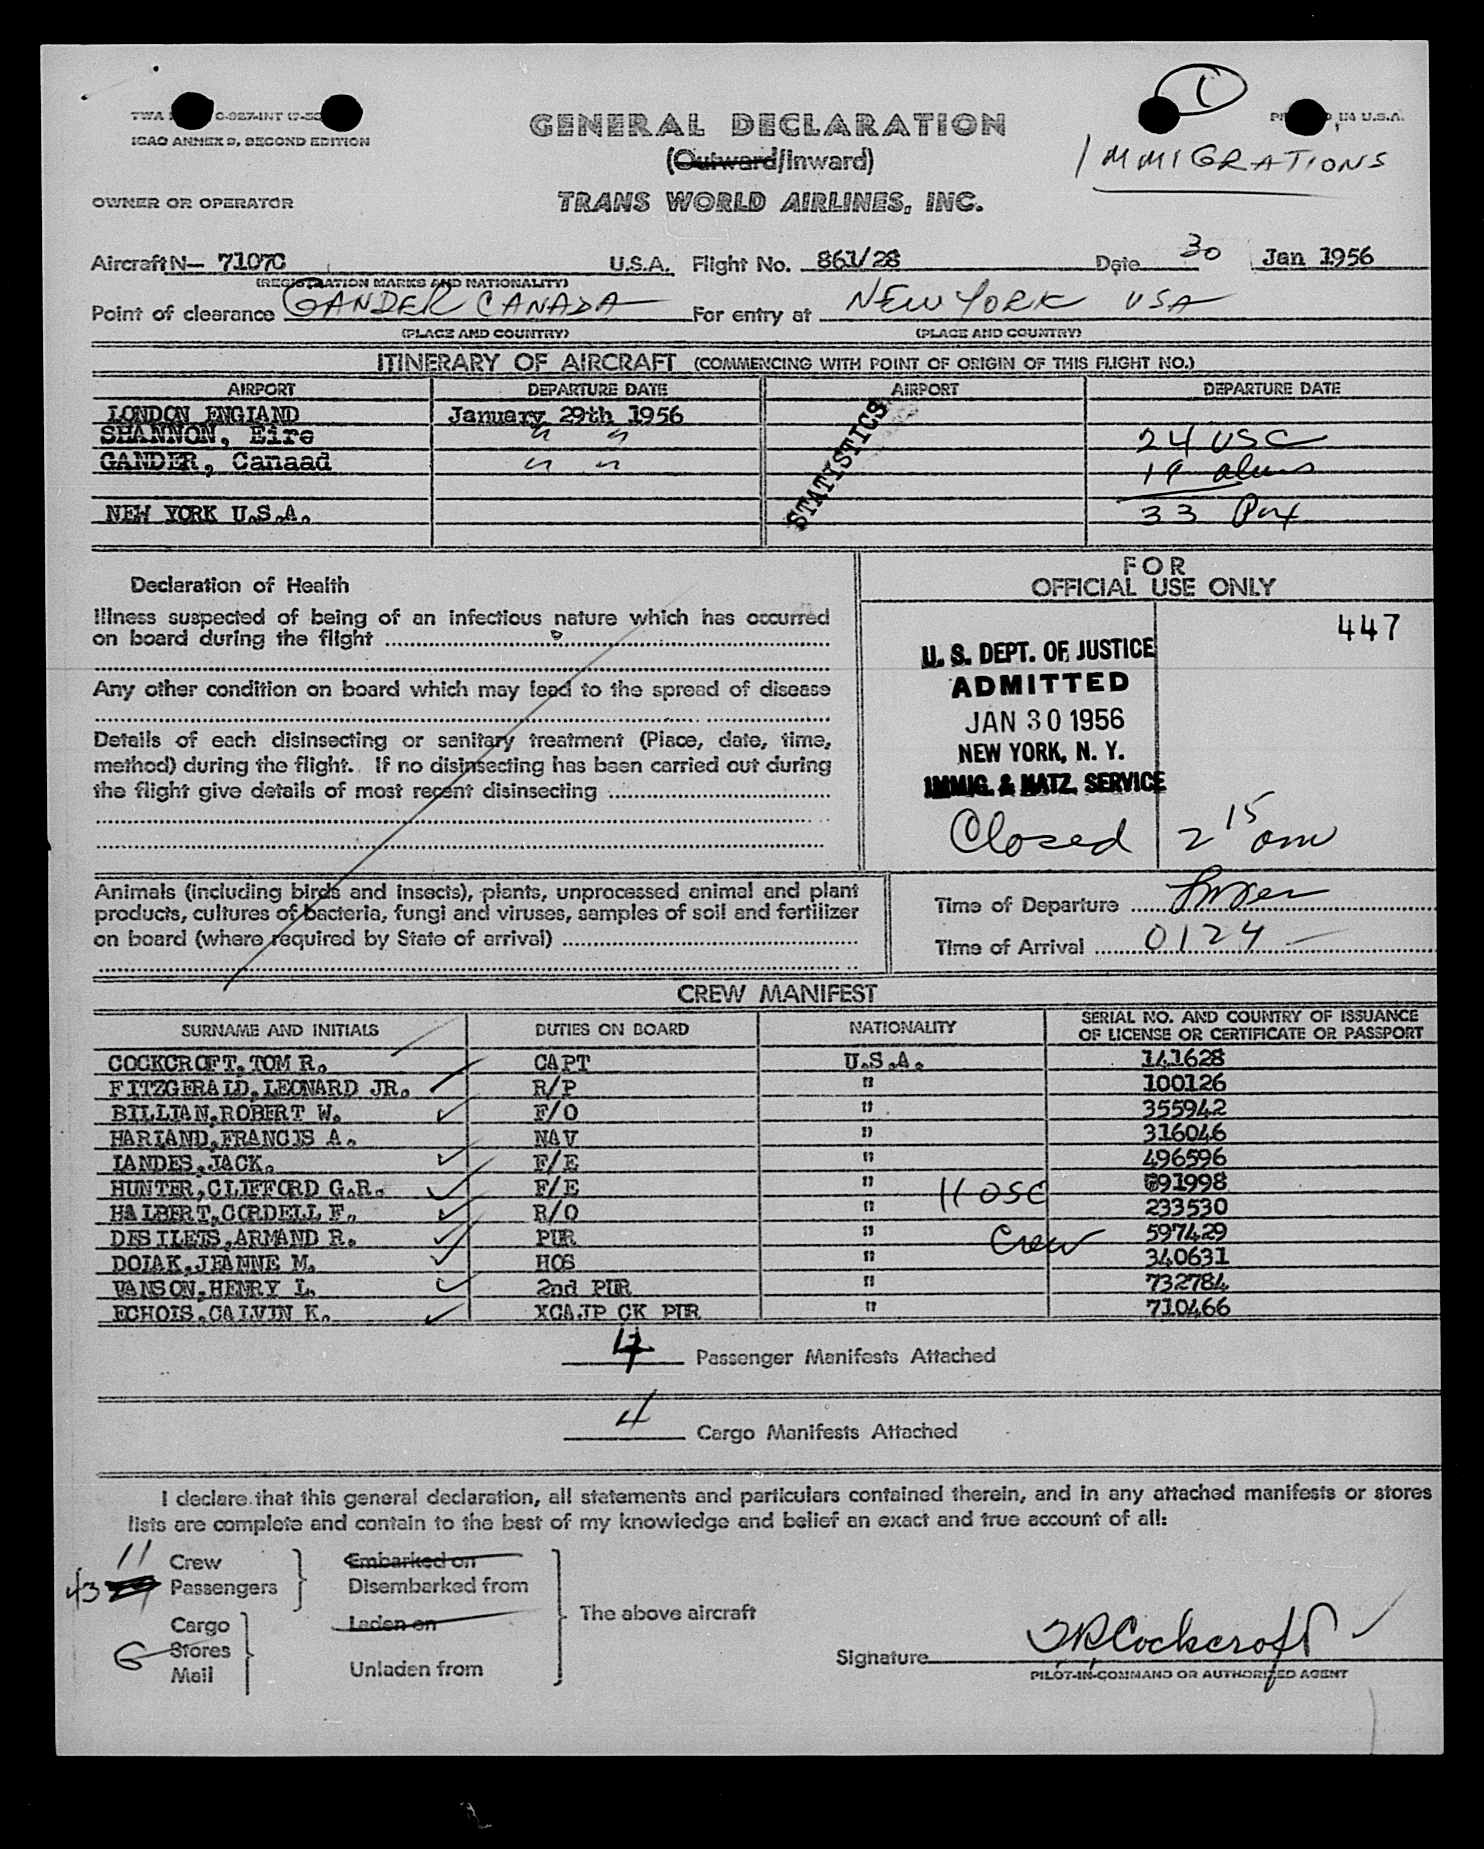 1
TWA C-927-INT
ICAO ANNEX 9, SECOND EDITION
GENERAL DECLARATION
IN U.S.A.
(Outward/Inward)
IMMIGRATIONS
OWNER OR OPERATOR
TRANS WORLD AIRLINES, INC.
Aircraft N— 7107C U.S.A. Flight No. 861/28 Date 30 Jan 1956
(REGISTRATION MARKS AND NATIONALITY)
Point of clearance GANDER CANADA For entry at NEW YORK USA
(PLACE AND COUNTRY) (PLACE AND COUNTRY)
ITINERARY OF AIRCRAFT (COMMENCING WITH POINT OF ORIGIN OF THIS FLIGHT NO.)
AIRPORT DEPARTURE DATE AIRPORT DEPARTURE DATE
LONDON ENGLAND January 29th 1956
SHANNON, Eire " " 24 USC
GANDER, Canaad " " 19 alns
STATISTICS
NEW YORK U.S.A. 33 Pax
Declaration of Health
Illness suspected of being of an infectious nature which has occurred
on board during the flight
Any other condition on board which may lead to the spread of disease
Details of each disinsecting or sanitary treatment (Place, date, time,
method) during the flight. If no disinsecting has been carried out during
the flight give details of most recent disinsecting
FOR
OFFICIAL USE ONLY
447
U. S. DEPT. OF JUSTICE
ADMITTED
JAN 30 1956
NEW YORK, N. Y.
IMMIG. & NATZ. SERVICE
Closed 2 15 am
Animals (including birds and insects), plants, unprocessed animal and plant
products, cultures of bacteria, fungi and viruses, samples of soil and fertilizer
on board (where required by State of arrival)
Time of Departure
Time of Arrival 0124
CREW MANIFEST
SURNAME AND INITIALS DUTIES ON BOARD NATIONALITY SERIAL NO. AND COUNTRY OF ISSUANCE
OF LICENSE OR CERTIFICATE OR PASSPORT
COCKCROFT,TOM R. CAPT U.S.A. 141628
FITZGERALD,LEONARD JR. R/P " 100126
BILLIAN,ROBERT W. F/O " 355942
HARLAND,FRANCIS A. NAV " 316046
LANDES,JACK. F/E " 496596
HUNTER,CLIFFORD G.R. F/E " 691998
11 OSC
HALBERT,CORDELL F. R/O " 233530
DESILETS,ARMAND R. PUR " 597429
Crew
DOLAK,JEANNE M. HOS " 340631
VANSON,HENRY L. 2nd PUR " 732784
ECHOLS,CALVIN K. XCAJP CK PUR " 710466
4 Passenger Manifests Attached
4 Cargo Manifests Attached
I declare that this general declaration, all statements and particulars contained therein, and in any attached manifests or stores
lists are complete and contain to the best of my knowledge and belief an exact and true account of all:
11 Crew Embarked on
43 Passengers Disembarked from
The above aircraft
Cargo Laden on
G Stores
Mail Unladen from
Signature TR Cockcroft
PILOT-IN-COMMAND OR AUTHORIZED AGENT